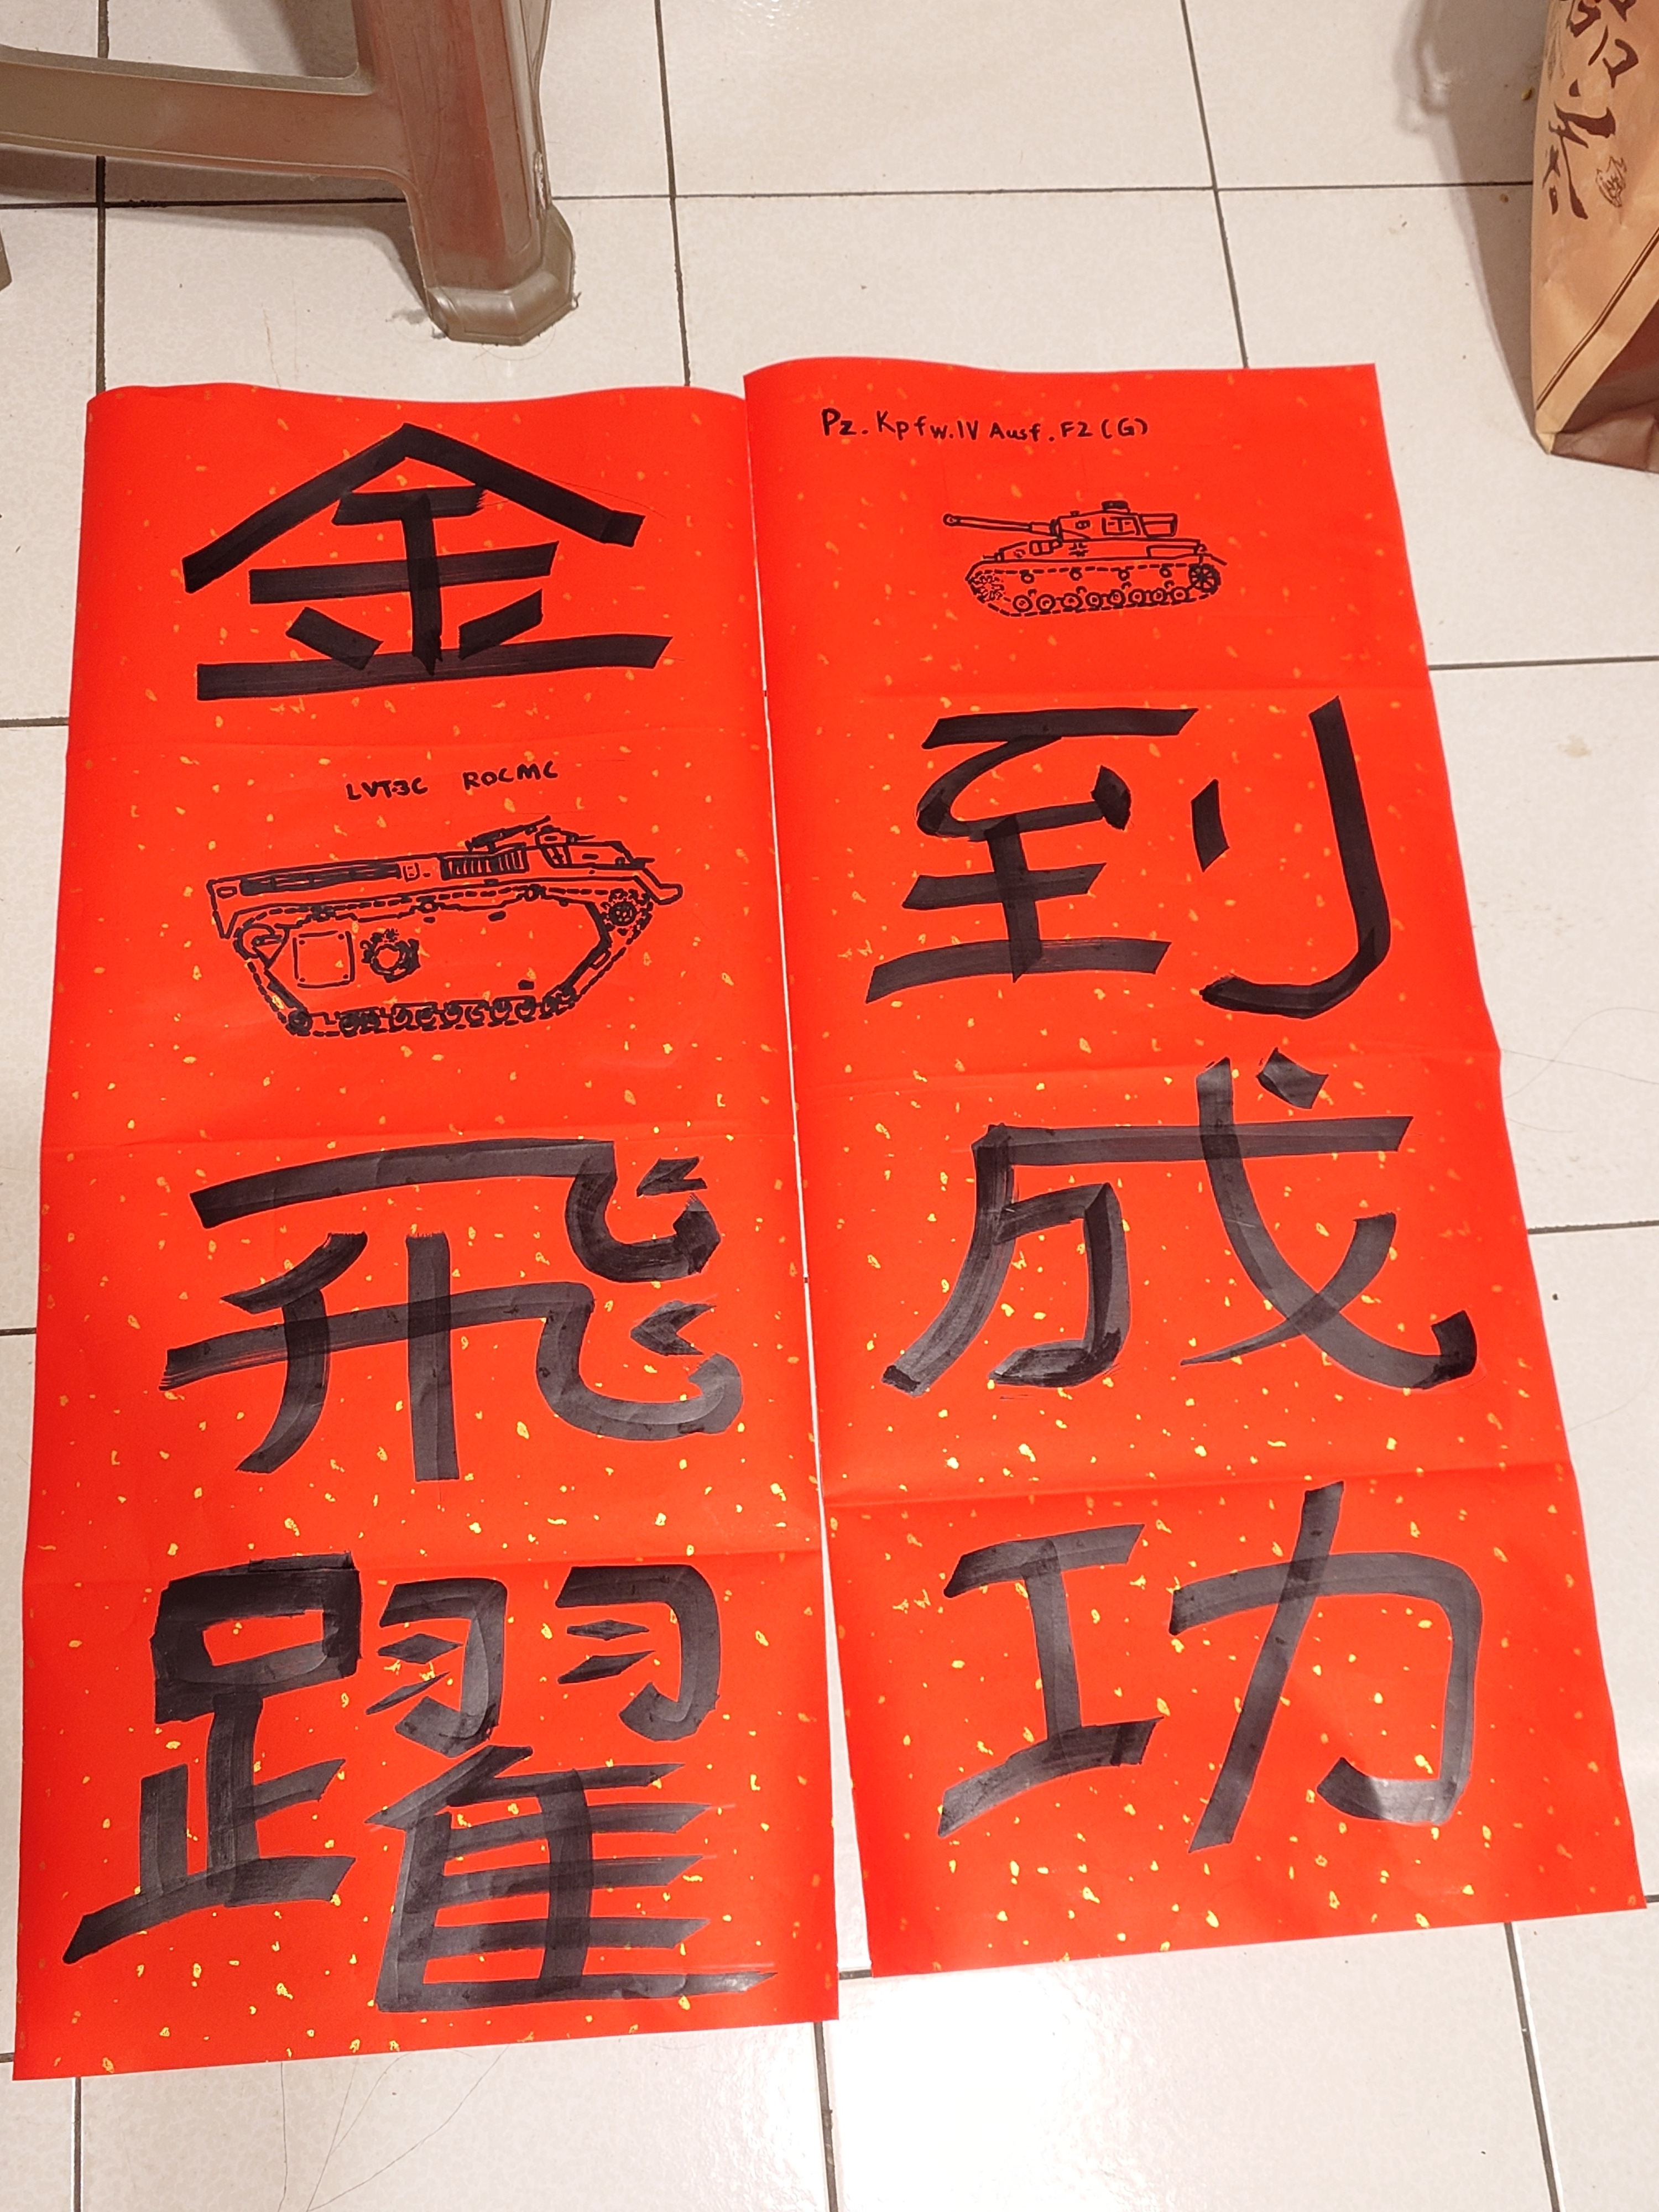 Pz. Kpfw. IV Ausf. F2 (G)
到
成
功
金
LVT3C ROCMC
飛
躍